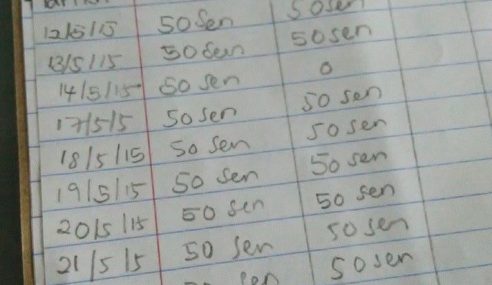 12/5/15 50 Sen 50sen
13/5/15 50 Sen 50sen
14/5/15 50 sen 0
17/5/5 50 sen 50 sen
18/5/15 50 sen 50 sen
19/5/15 50 sen 50 sen
20/5/15 50 sen 50 sen
21/5/5 50 sen 50 sen
sen 50 sen